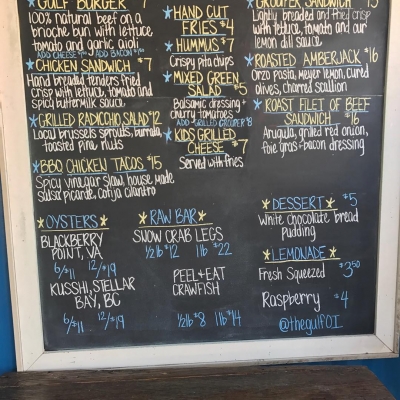 GULF BURGER 7
100% natural beef on a
brioche bun with lettuce
tomato and garlic aioli
ADD CHEESE ADD BACON
CHICKEN SANDWICH $7
Hand breaded tenders fried
crisp with lettuce, tomato and
spicy buttermilk sauce
GRILLED RADICCHIO SALAD $12
Local brussels sprouts, burrata,
toasted pine nuts
BBQ CHICKEN TACOS $15
Spicy vinegar slaw, house made
salsa picarde, cotija cilantro
OYSTERS
BLACKBERRY
POINT, VA
6/$11 12/$19
KUSSHI, STELLAR
BAY, BC
6/$11 12/$19
HAND CUT
FRIES $4
HUMMUS $7
Crispy pita chips
MIXED GREEN
SALAD $5
Balsamic dressing +
cherry tomatoes
ADD GRILLED GROUPER $8
KIDS GRILLED
CHEESE $7
Served with fries
RAW BAR
SNOW CRAB LEGS
1/2lb $12 1lb $22
PEEL+EAT
CRAWFISH
1/2lb $8 1lb $14
GROUPER SANDWICH 15
Lightly breaded and fried crisp
with lettuce, tomato and our
lemon dill sauce
ROASTED AMBERJACK $16
Orzo pasta, meyer lemon, cured
olives, charred scallion
ROAST FILET OF BEEF
SANDWICH $16
Arugula, grilled red onion,
foie gras-bacon dressing
DESSERT $5
White chocolate bread
pudding
LEMONADE
Fresh Squeezed $3.50
Raspberry $4
@thegulfOI